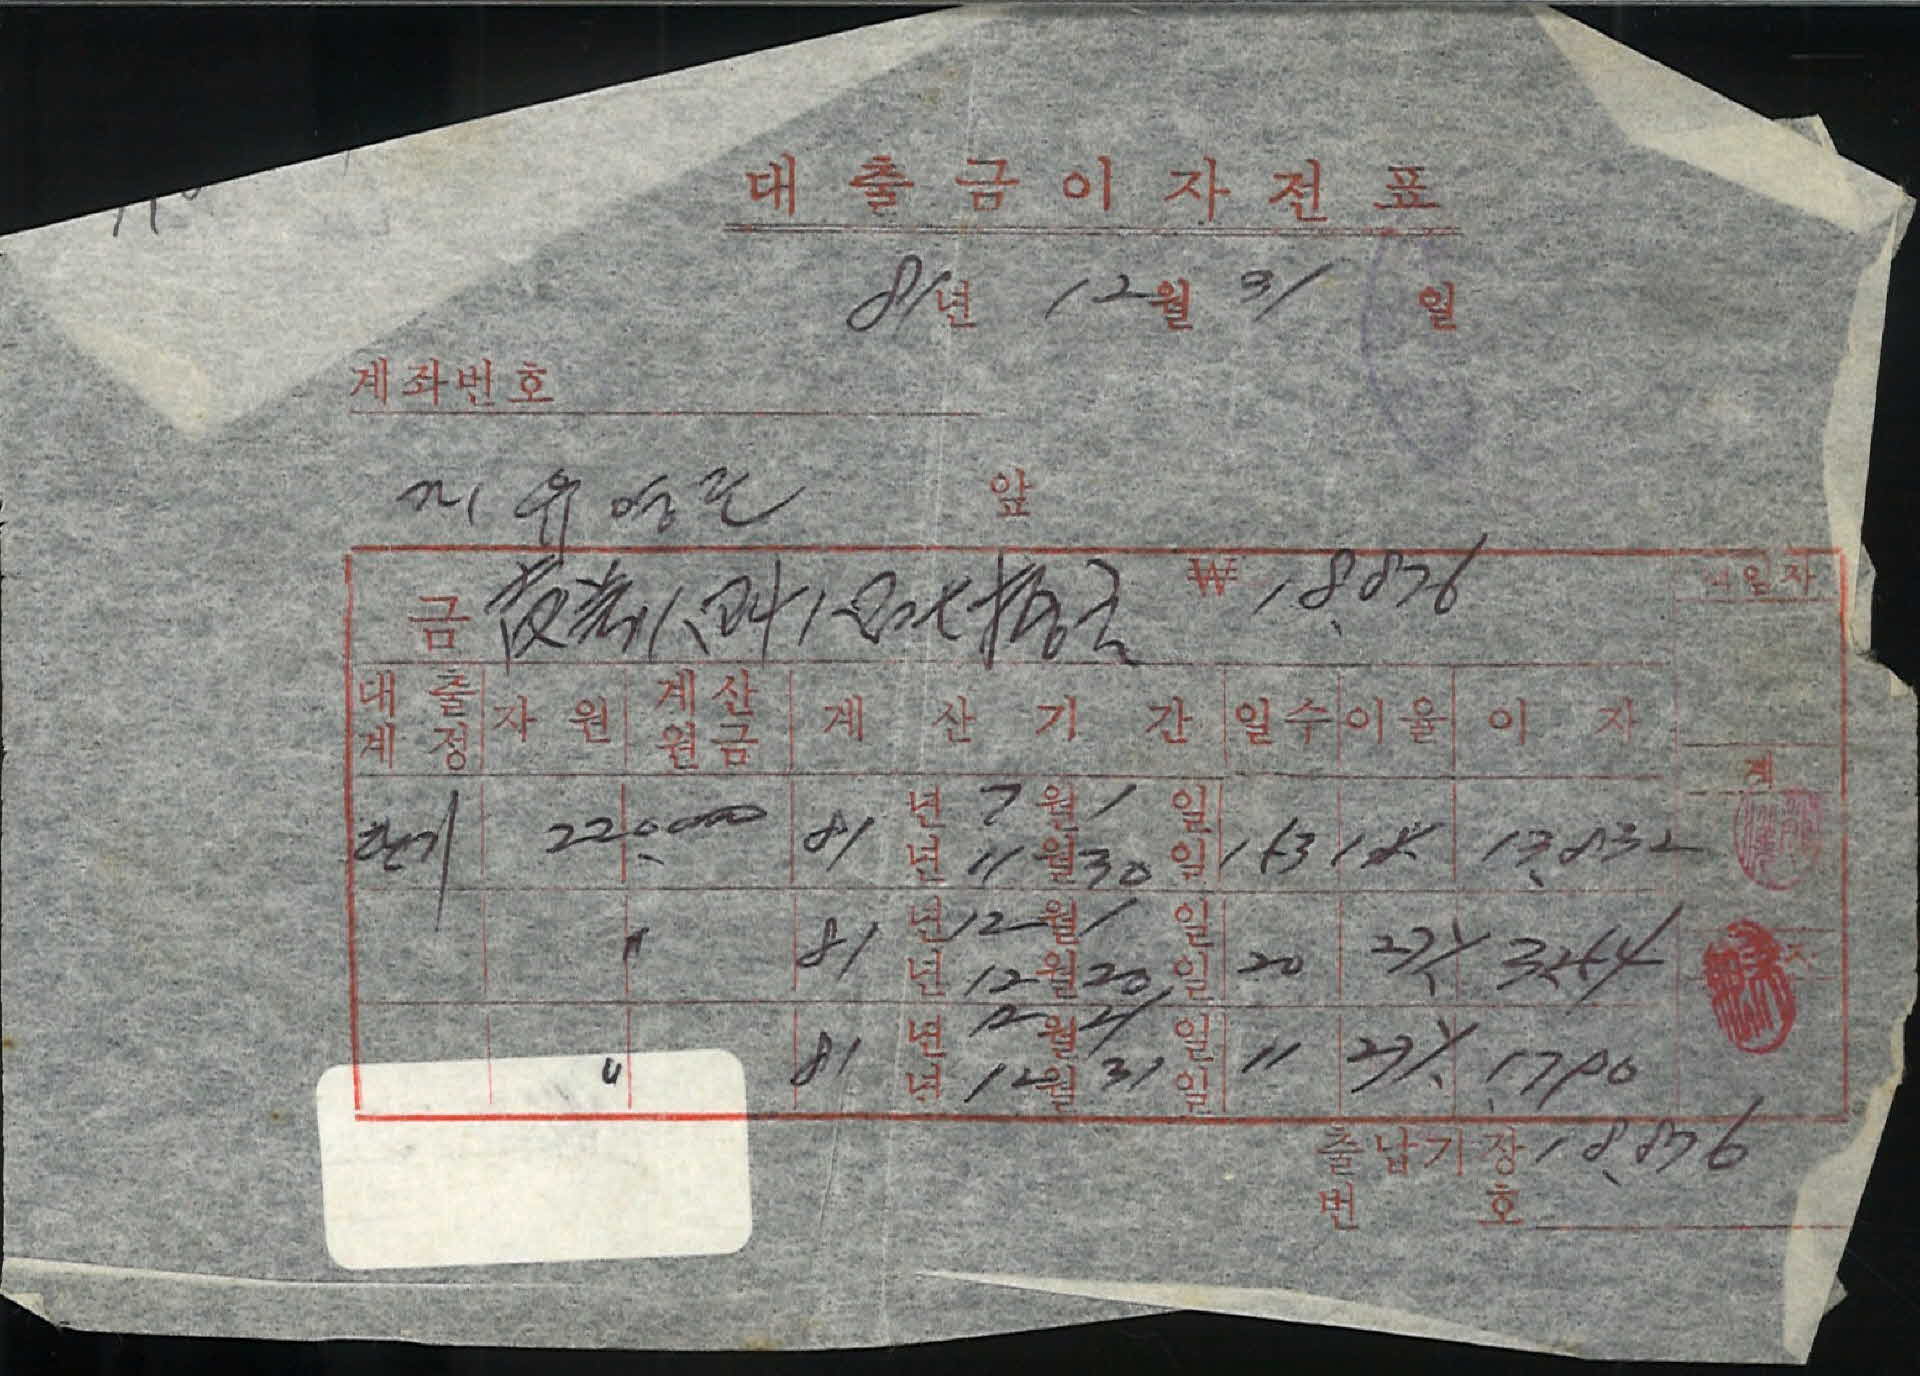 대출금이자전표
81년 12월 31일
계좌번호
유영근 앞
금 ₩ 18,876
대출계정 자원 계산원금 계산기간 일수 이율 이자
계
220,000 81년 7월 1일
년 11월 30일 153 13,832
〃 81년 12월 1일
년 12월 20일 20 27% 3264
〃 81년 12월 21일
년 12월 31일 11 27% 1,780
출납기장 18,876
번호